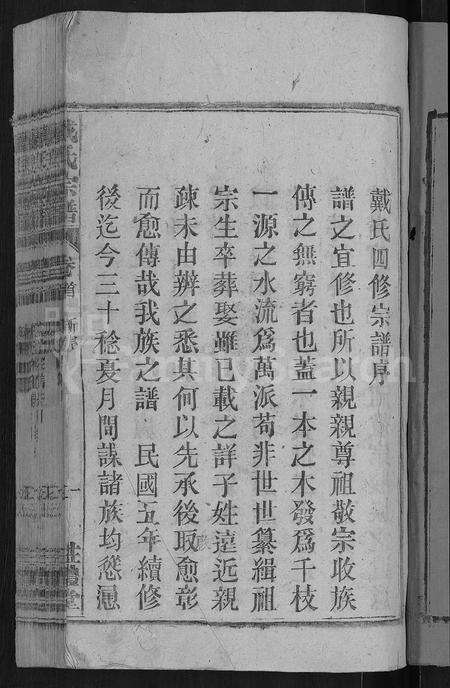 戴氏四修宗譜序
譜之宜修也所以親親尊祖敬宗收族
傳之無窮者也蓋一本之木發爲千枝
一源之水流爲萬派苟非世世纂緝祖
宗生卒葬娶雖已載之詳子姓遠近親
疎未由辨之悉其何以先承後取愈彰
而愈傳哉我族之譜 民國五年續修
後迄今三十稔憂月間謀諸族均慫慂
戴氏宗譜 卷首 一